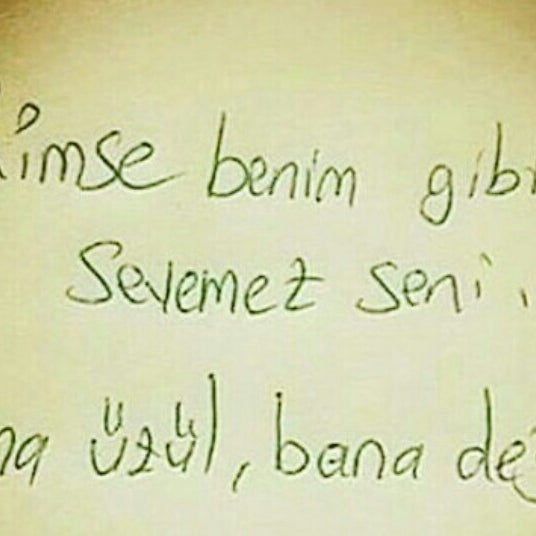 Kimse benim gibi
Sevemez seni.
üzül, bana